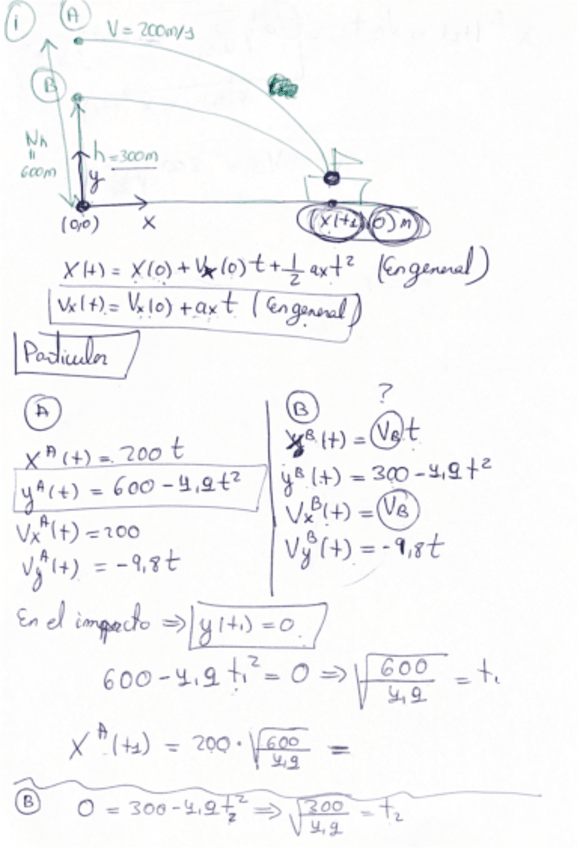 i
A V = 200m/s
B
Nh
=
600m
h = 300m
y
(0,0) x (x(t1), 0) m
X(t) = X(0) + Vx(0)t + 1/2 ax t² (En general)
Vx(t) = Vx(0) + ax t (En general)
Particular
A
x^A(t) = 200 t
y^A(t) = 600 - 4,9 t²
Vx^A(t) = 200
Vy^A(t) = -9,8 t
?
B
x^B(t) = VB t
y^B(t) = 300 - 4,9 t²
Vx^B(t) = VB
Vy^B(t) = -9,8 t
En el impacto ⇒ y(t1) = 0
600 - 4,9 t1² = 0 ⇒ √(600/4,9) = t1
X^A(t1) = 200 · √(600/4,9) =
B 0 = 300 - 4,9 t2² ⇒ √(300/4,9) = t2